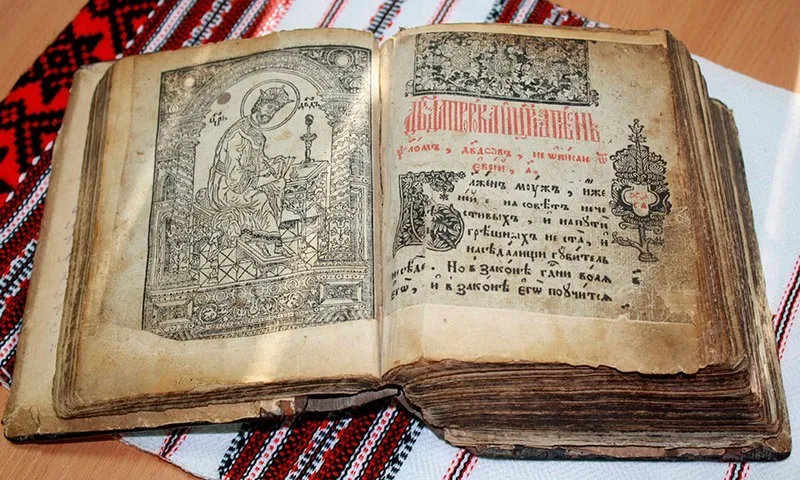 дв҃дъ
Дв҃да прⷪ҇рка и цр҃ѧ пѣснь
ѱ҃ломъ, дв҃довъ, не ѡписан ѿ
еврѣи, а҃.
Бл҃женъ моужъ, иже
не иде на совѣтъ нече
стивыхъ, и на пути
грѣшныхъ не ста, и
на сѣдалищи гꙋбитель
не сѣде. Но в законѣ гдⷭ҇ни волѧ
егѡ, и в законѣ егѡ поучитсѧ